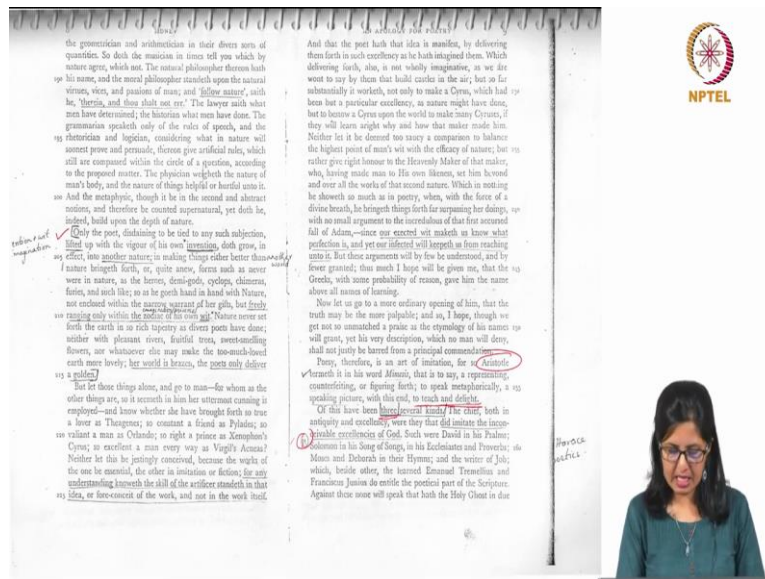 SIDNEY
the geometrician and arithmetician in their divers sorts of
quantities. So doth the musician in times tell you which by
nature agree, which not. The natural philosopher thereon hath
190 his name, and the moral philosopher standeth upon the natural
virtues, vices, and passions of man; and 'follow nature', saith
he, 'therein, and thou shalt not err.' The lawyer saith what
men have determined; the historian what men have done. The
grammarian speaketh only of the rules of speech, and the
195 rhetorician and logician, considering what in nature will
soonest prove and persuade, thereon give artificial rules, which
still are compassed within the circle of a question, according
to the proposed matter. The physician weigheth the nature of
man's body, and the nature of things helpful or hurtful unto it.
200 And the metaphysic, though it be in the second and abstract
notions, and therefore be counted supernatural, yet doth he,
indeed, build upon the depth of nature.
Only the poet, disdaining to be tied to any such subjection,
lifted up with the vigour of his own invention, doth grow, in
205 effect, into another nature; in making things either better than
nature bringeth forth, or, quite anew, forms such as never
were in nature, as the heroes, demi-gods, cyclops, chimeras,
furies, and such like; so as he goeth hand in hand with Nature,
not enclosed within the narrow warrant of her gifts, but freely
210 ranging only within the zodiac of his own wit. Nature never set
forth the earth in so rich tapestry as divers poets have done;
neither with pleasant rivers, fruitful trees, sweet-smelling
flowers, nor whatsoever else may make the too-much-loved
earth more lovely; her world is brazen, the poets only deliver
215 a golden.
But let those things alone, and go to man—for whom as the
other things are, so it seemeth in him her uttermost cunning is
employed—and know whether she have brought forth so true
a lover as Theagenes; so constant a friend as Pylades; so
220 valiant a man as Orlando; so right a prince as Xenophon's
Cyrus; so excellent a man every way as Virgil's Aeneas?
Neither let this be jestingly conceived, because the works of
the one be essential, the other in imitation or fiction; for any
understanding knoweth the skill of the artificer standeth in that
225 idea, or fore-conceit of the work, and not in the work itself.
AN APOLOGY FOR POETRY
And that the poet hath that idea is manifest, by delivering
them forth in such excellency as he hath imagined them. Which
delivering forth, also, is not wholly imaginative, as we are
wont to say by them that build castles in the air; but so far
substantially it worketh, not only to make a Cyrus, which had 230
been but a particular excellency, as nature might have done,
but to bestow a Cyrus upon the world to make many Cyruses, if
they will learn aright why and how that maker made him.
Neither let it be deemed too saucy a comparison to balance
the highest point of man's wit with the efficacy of nature; but 235
rather give right honour to the Heavenly Maker of that maker,
who, having made man to His own likeness, set him beyond
and over all the works of that second nature. Which in nothing
he showeth so much as in poetry, when, with the force of a
divine breath, he bringeth things forth far surpassing her doings,
with no small argument to the incredulous of that first accursed
fall of Adam,—since our erected wit maketh us know what
perfection is, and yet our infected will keepeth us from reaching
unto it. But these arguments will by few be understood, and by
fewer granted; thus much I hope will be given me, that the 245
Greeks, with some probability of reason, gave him the name
above all names of learning.
Now let us go to a more ordinary opening of him, that the
truth may be the more palpable; and so, I hope, though we
get not so unmatched a praise as the etymology of his names 250
will grant, yet his very description, which no man will deny,
shall not justly be barred from a principal commendation.
Poesy, therefore, is an art of imitation, for so Aristotle
termeth it in his word Mimesis, that is to say, a representing,
counterfeiting, or figuring forth; to speak metaphorically, a 255
speaking picture, with this end, to teach and delight.
Of this have been three several kinds. The chief, both in
antiquity and excellency, were they that did imitate the incon-
ceivable excellencies of God. Such were David in his Psalms;
Solomon in his Song of Songs, in his Ecclesiastes and Proverbs; 260
Moses and Deborah in their Hymns; and the writer of Job;
which, beside other, the learned Emanuel Tremellius and
Franciscus Junius do entitle the poetical part of the Scripture.
Against these none will speak that hath the Holy Ghost in due
Horace
NPTEL